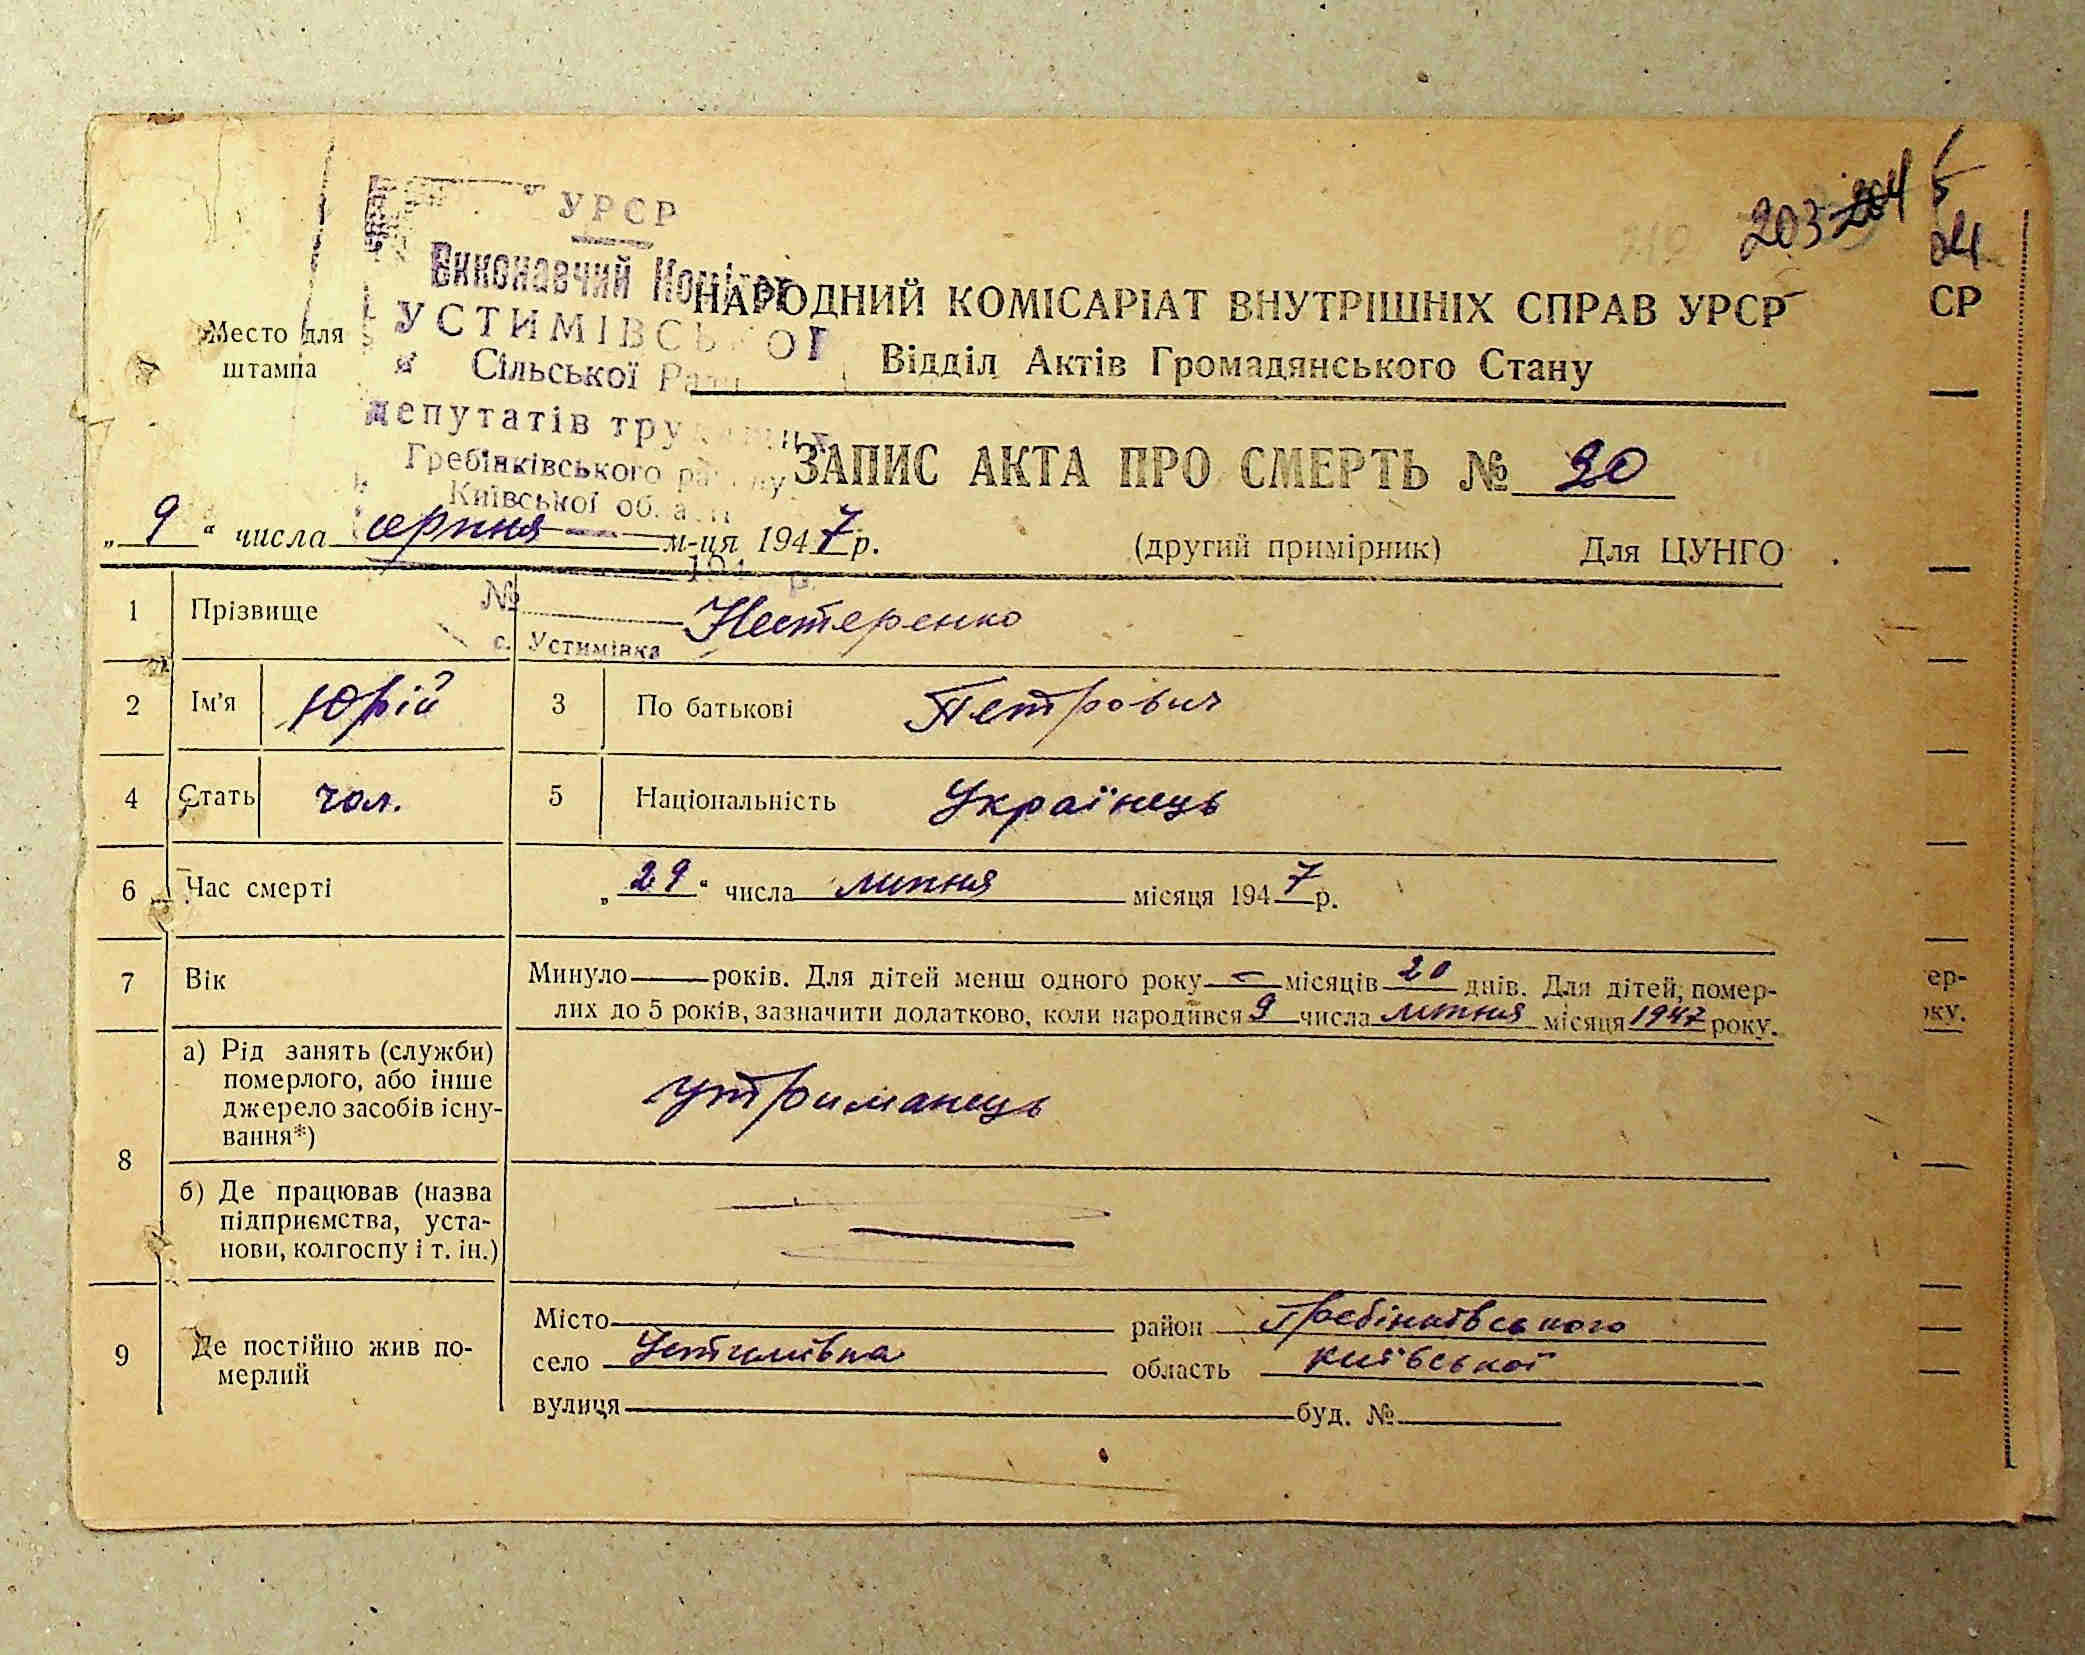 203 204
УРСР
Виконавчий Комітет
УСТИМІВСЬКОГ
Сільської Ради
депутатів трудящих
Гребінківського району
Київської області
194 р.
№
с. Устимівка
Место для
штампа
НАРОДНИЙ КОМІСАРІАТ ВНУТРІШНІХ СПРАВ УРСР
Відділ Актів Громадянського Стану
ЗАПИС АКТА ПРО СМЕРТЬ № 20
„9“ числа серпня м-ця 1947 р.
(другий примірник) Для ЦУНГО
1 Прізвище Нестеренко
2 Ім'я Юрій 3 По батькові Петрович
4 Стать чол. 5 Національність Українець
6 Час смерті „29“ числа липня місяця 1947 р.
7 Вік Минуло — років. Для дітей менш одного року — місяців 20 днів. Для дітей, помер-
лих до 5 років, зазначити додатково, коли народився 9 числа липня місяця 1947 року.
8 а) Рід занять (служби)
померлого, або інше
джерело засобів існу-
вання*)
утриманець
б) Де працював (назва
підприємства, уста-
нови, колгоспу і т. ін.)
—
9 Де постійно жив по-
мерлий
Місто район Гребінківського
село Устимівка область київської
вулиця буд. №
СР
ер-
ку.